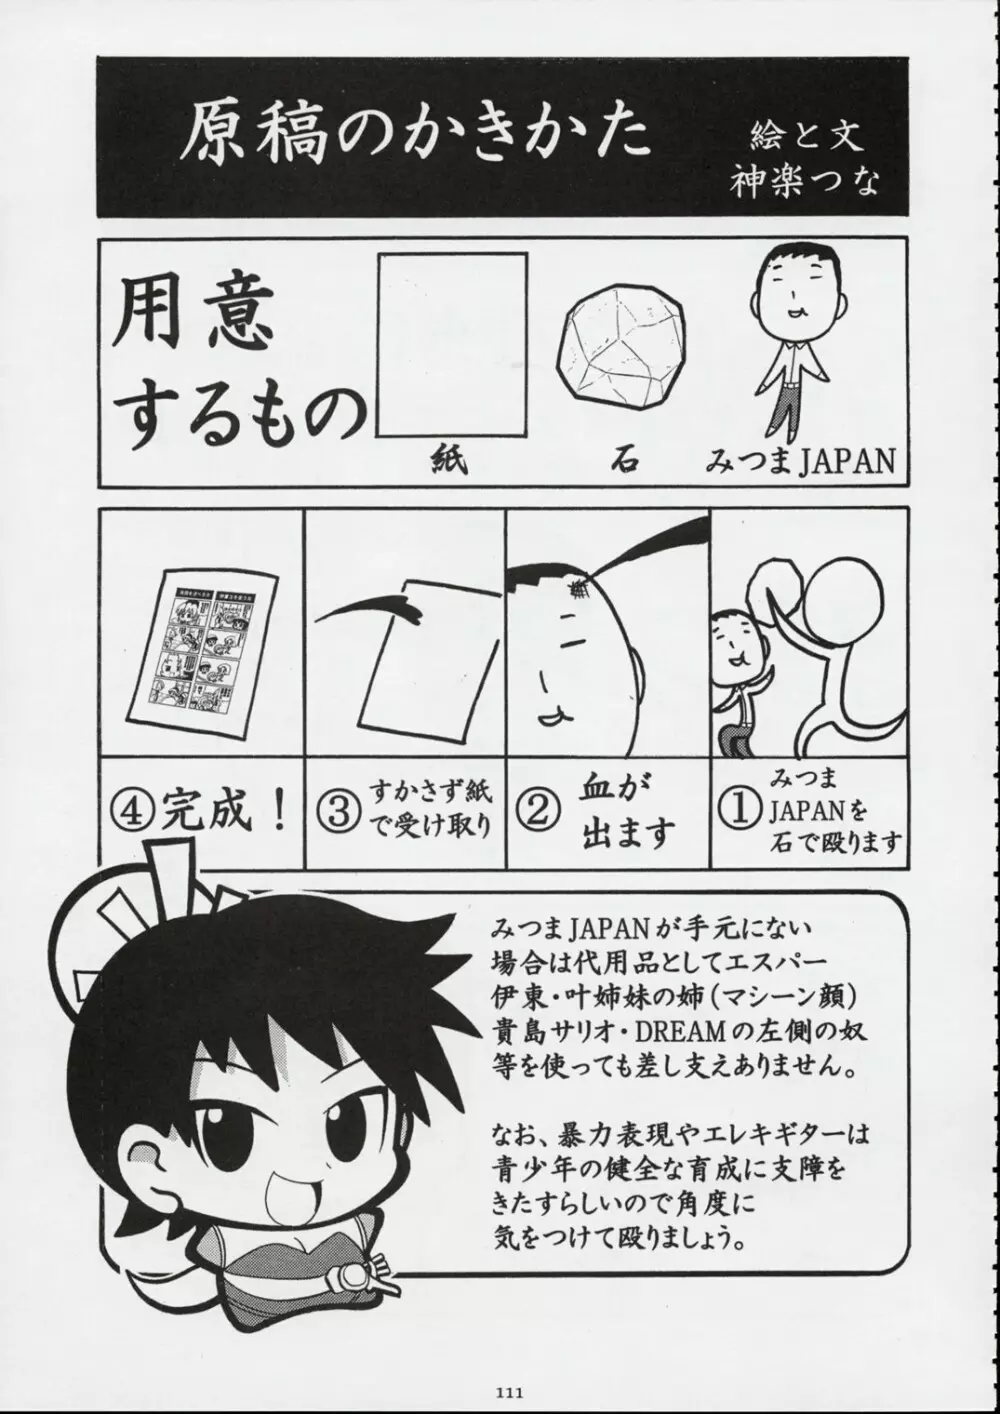 原稿のかきかた
絵と文
神楽つな
用意
するもの
紙
石
みつまJAPAN
①みつま
JAPANを
石で殴ります
②血が
出ます
③すかさず紙
で受け取り
④完成！
みつまJAPANが手元にない
場合は代用品としてエスパー
伊東・叶姉妹の姉（マシーン顔）
貴島サリオ・DREAMの左側の奴
等を使っても差し支えありません。
なお、暴力表現やエレキギターは
青少年の健全な育成に支障を
きたすらしいので角度に
気をつけて殴りましょう。
111